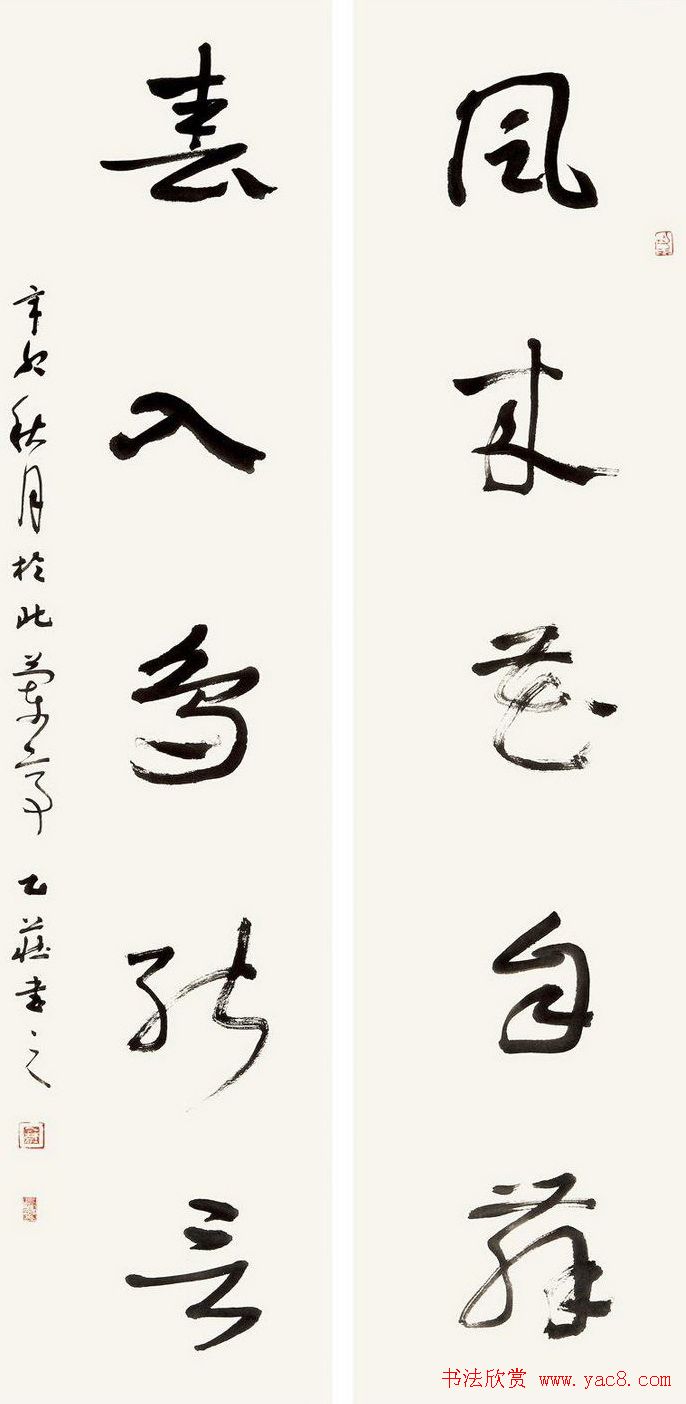 風來花自舞
春入鳥能言
辛卯秋月於此蘭亭 乙莊書之
书法欣赏 www.yac8.com